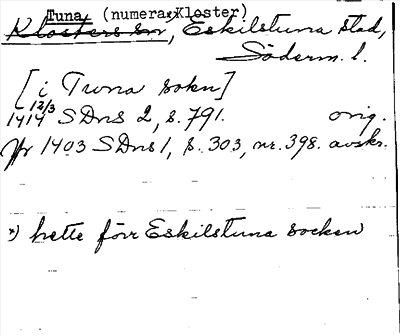 Tuna (numera *)Kloster)
Klosters sn, Eskilstuna stad,
Söderm. l.
[i Tuna sokn]
1414 12/3 SDns 2, s. 791. orig.
Jfr 1403 SDns 1, s. 303, nr. 398. avskr.
*) hette förr Eskilstuna socken